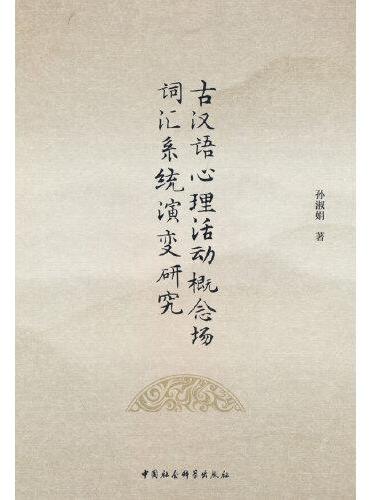 古汉语心理活动概念场
词汇系统演变研究
孙淑娟 著
中国社会科学出版社